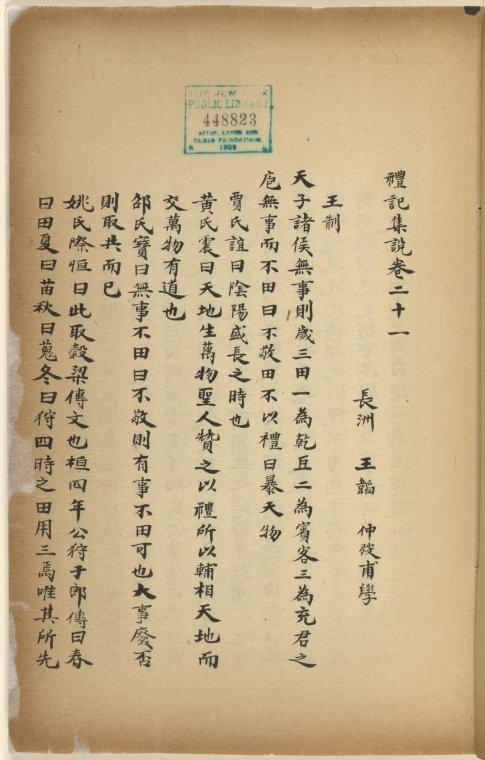 THE NEW YORK
PUBLIC LIBRARY
448823
ASTOR, LENOX AND
TILDEN FOUNDATIONS
R 1909
禮記集說卷二十一
長洲 王韜 仲弢甫學
王制
天子諸侯無事則歲三田一為乾豆二為賓客三為充君之
庖無事而不田曰不敬田不以禮曰暴天物
賈氏誼曰陰陽盛長之時也
黃氏震曰天地生萬物聖人贊之以禮所以輔相天地而
交萬物有道也
邵氏寶曰無事不田曰不敬則有事不田可也大事廢否
則取共而已
姚氏際恒曰此取穀梁傳文也桓四年公狩于郎傳曰春
曰田夏曰苗秋曰蒐冬曰狩四時之田用三焉唯其所先